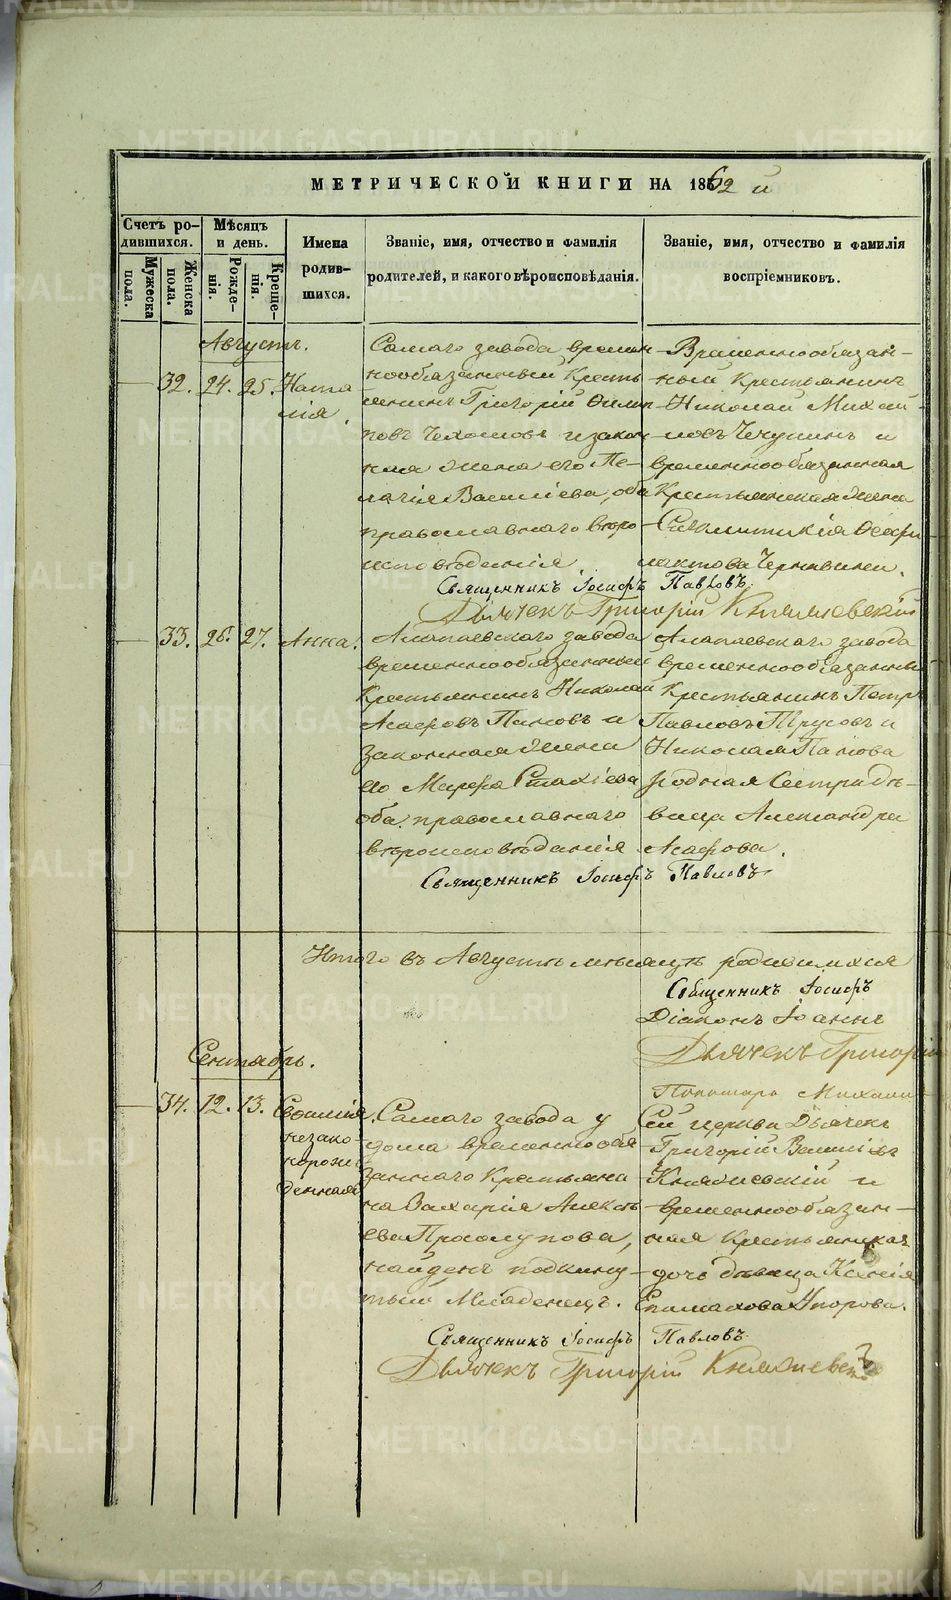 МЕТРИЧЕСКОЙ КНИГИ НА 1862 й
Счетъ родившихся.
Мужеска пола.
Женска пола.
Мѣсяцъ и день.
Рожденія.
Крещенія.
Имена родившихся.
Званіе, имя, отчество и фамилія родителей, и какого вѣроисповѣданія.
Званіе, имя, отчество и фамилія воспріемниковъ.
Августъ.
32. 24. 25. Наталія
Самаго завода времен
нообязанный Кресть
янинъ Григорій Филип
повъ Чехомовъ и закон
ная жена его Пе-
лагія Василіева, оба
православнаго вѣро
исповѣданія
Временнообязан-
ный Крестьянинъ
Николай Михай
ловъ Чечулинъ и
временнообязанная
Крестьянская жена
Секлитикія Феофи
лактова
Священникъ Іосифъ Павловъ.
Дьячекъ Григорій Княжевскій
33. 26. 27. Анна.
Алапаевскаго завода
временнообязанный
Крестьянинъ Николай
Асафовъ Пановъ и
законная жена
его Марфа Стахіева
оба православнаго
вѣроисповѣданія
Алапаевскаго завода
временнообязанный
Крестьянинъ Петръ
Павловъ Трусовъ и
Николая Панова
родная Сестра дѣ-
вица Александра
Асафова.
Священникъ Іосифъ Павловъ
Итого въ Августѣ мѣсяцѣ родившихся
Священникъ Іосифъ
Діаконъ Іоаннъ
Дьячекъ Григорій
Пономарь Михаилъ
Сентябрь.
34. 12. 13.
незако-
норож-
денная
Самаго завода у
дома временнообя
заннаго Крестьяни
на Захарія Алексѣ
ева Просолупова,
найденъ подкину-
тый Младенецъ.
Сей церкви Дьячекъ
Григорій Василіевъ
Княжевскій и
временнообязан-
ная Крестьянская
дочь дѣвица Ксенія
Епимахова Упорова.
Священникъ Іосифъ Павловъ
Дьячекъ Григорій Княжевскій
METRIKI.GASO-URAL.RU